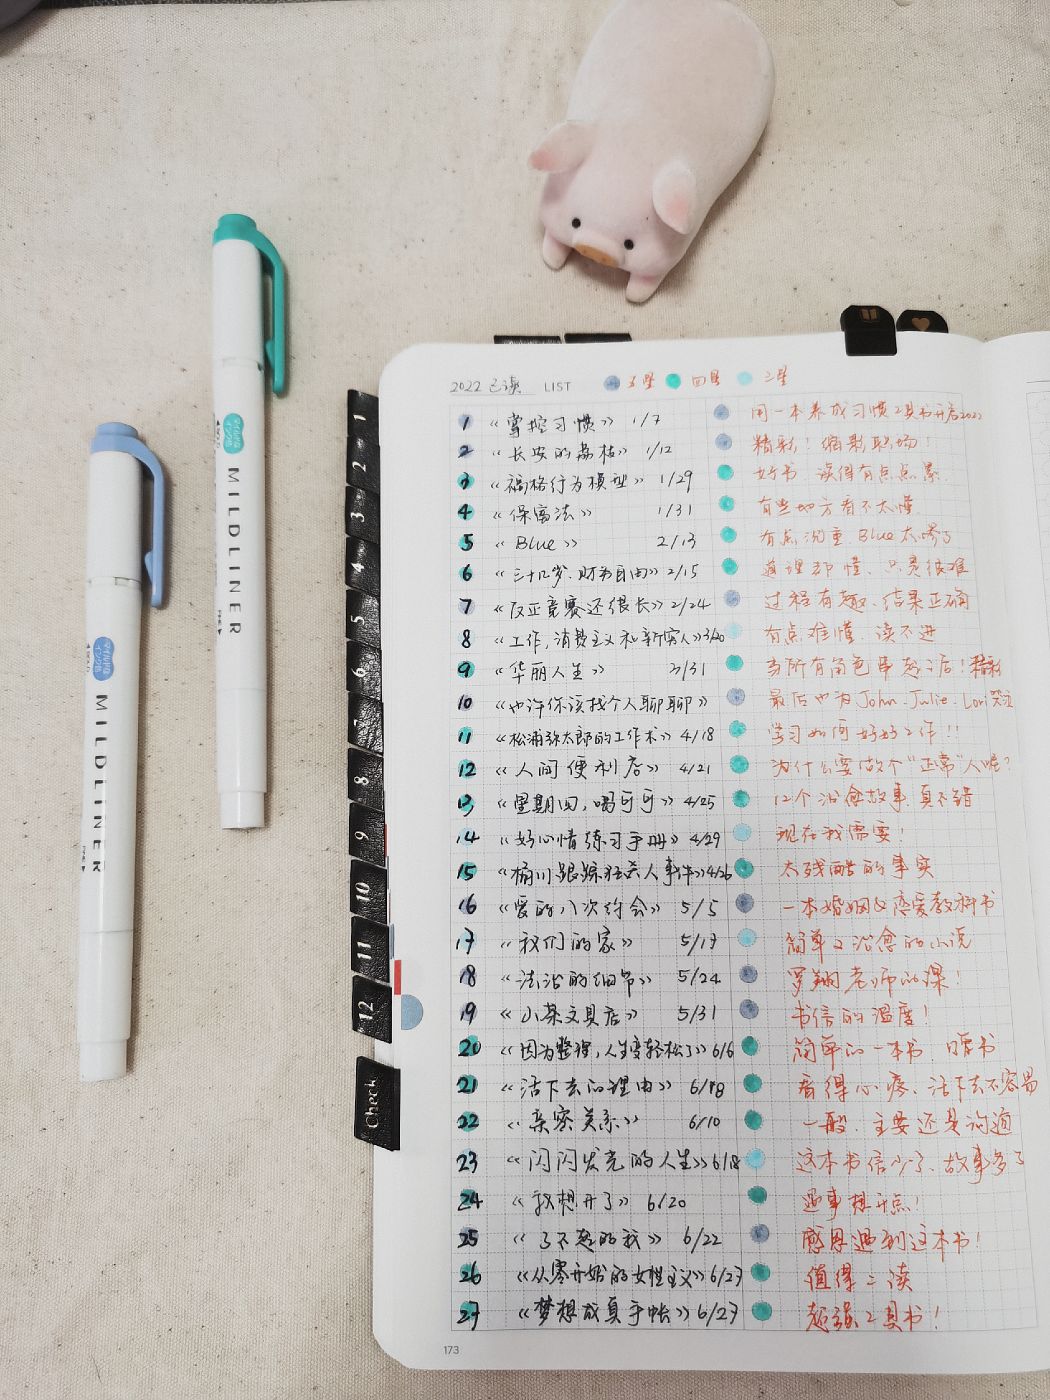 2022 已读 LIST 五星 四星 三星
1 《掌控习惯》 1/7 用一本养成习惯工具书开启2022
2 《长安的荔枝》 1/12 精彩！缩影职场！
3 《福格行为模型》 1/29 好书 读得有点点累
4 《保富法》 1/31 有些地方看不太懂
5 《Blue》 2/13 有点沉重. Blue太惨了
6 《三十几岁、财务自由》 2/15 道理都懂、只是很难
7 《反正竞赛还很长》 2/24 过程有趣、结果正确
8 《工作,消费主义和新穷人》 3/20 有点难懂、读不进
9 《华丽人生》 3/31 当所有角色串起之后！精彩
10 《也许你该找个人聊聊》 最后也为John.Julie.Lori哭泣
11 《松浦弥太郎的工作术》 4/18 学习如何好好工作!!
12 《人间便利店》 4/21 为什么要做个"正常"人呢？
13 《星期四,喝可可》 4/25 12个治愈故事 真不错
14 《好心情练习手册》 4/29 现在我需要！
15 《桶川跟踪狂杀人事件》 4/26 太残酷的事实
16 《爱的八次约会》 5/5 一本婚姻&恋爱教科书
17 《我们的家》 5/17 简单又治愈的小说
18 《法治的细节》 5/24 罗翔老师的课！
19 《山茶文具店》 5/31 书信的温度！
20 《因为整理,人生变轻松了》 6/6 简单的一本书
21 《活下去的理由》 6/18 看得心疼、活下去不容易
22 《亲密关系》 6/10 一般. 主要还是沟通
23 《闪闪发光的人生》 6/18 这本书信少了、故事多了
24 《我想开了》 6/20 遇事想开点！
25 《了不起的我》 6/22 感恩遇到这本书！
26 《从零开始的女性主义》 6/27 值得二读
27 《梦想成真手帐》 6/27 超强工具书！
173
1
2
3
4
5
6
7
8
9
10
11
12
Check
MILDLINER
マイルドな
インク色
MILDLINER
マイルドな
インク色